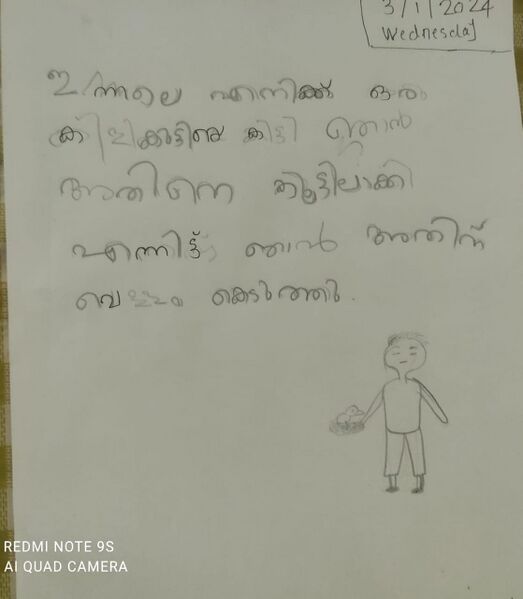 3/1/2024
Wednesday
ഇന്നലെ എനിക്ക് ഒരു
കിളികുട്ടിയെ കിട്ടി ഞാൻ
അതിനെ കൂട്ടിലാക്കി
എന്നിട്ട് ഞാൻ അതിന്
വെള്ളം കൊടുത്തു.
REDMI NOTE 9S
AI QUAD CAMERA